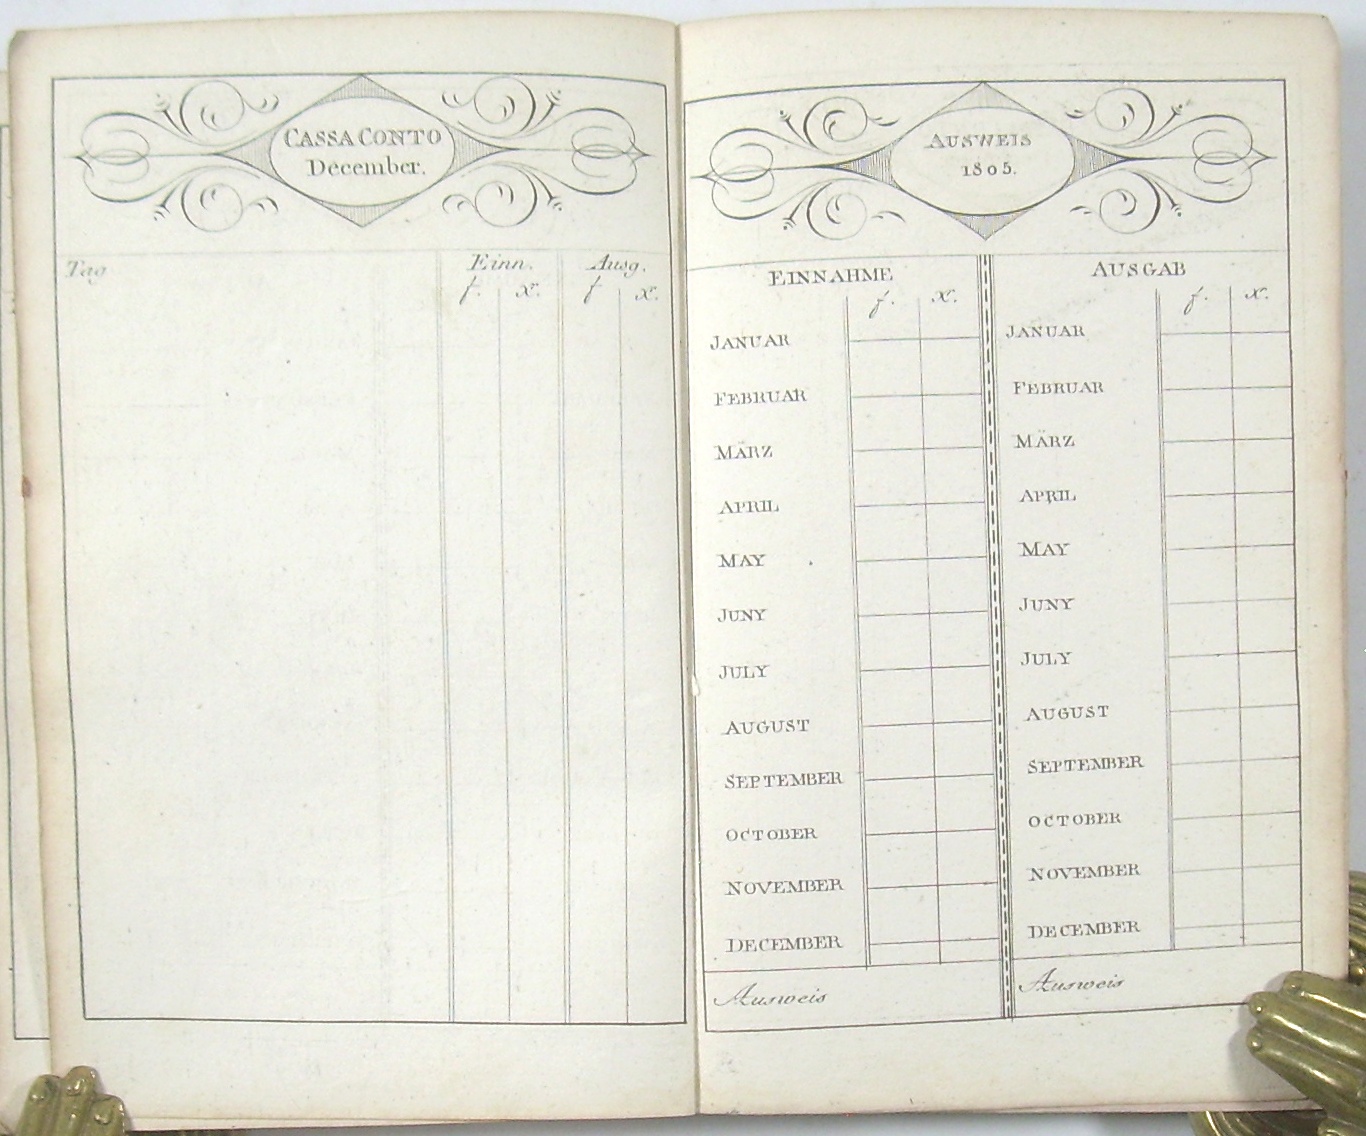 CASSA CONTO
December.
Tag Einn. Ausg.
f. x. f x.
AUSWEIS
1805.
EINNAHME AUSGAB
f. x. f. x.
JANUAR JANUAR
FEBRUAR FEBRUAR
MÄRZ MÄRZ
APRIL APRIL
MAY MAY
JUNY JUNY
JULY JULY
AUGUST AUGUST
SEPTEMBER SEPTEMBER
OCTOBER OCTOBER
NOVEMBER NOVEMBER
DECEMBER DECEMBER
Ausweis Ausweis